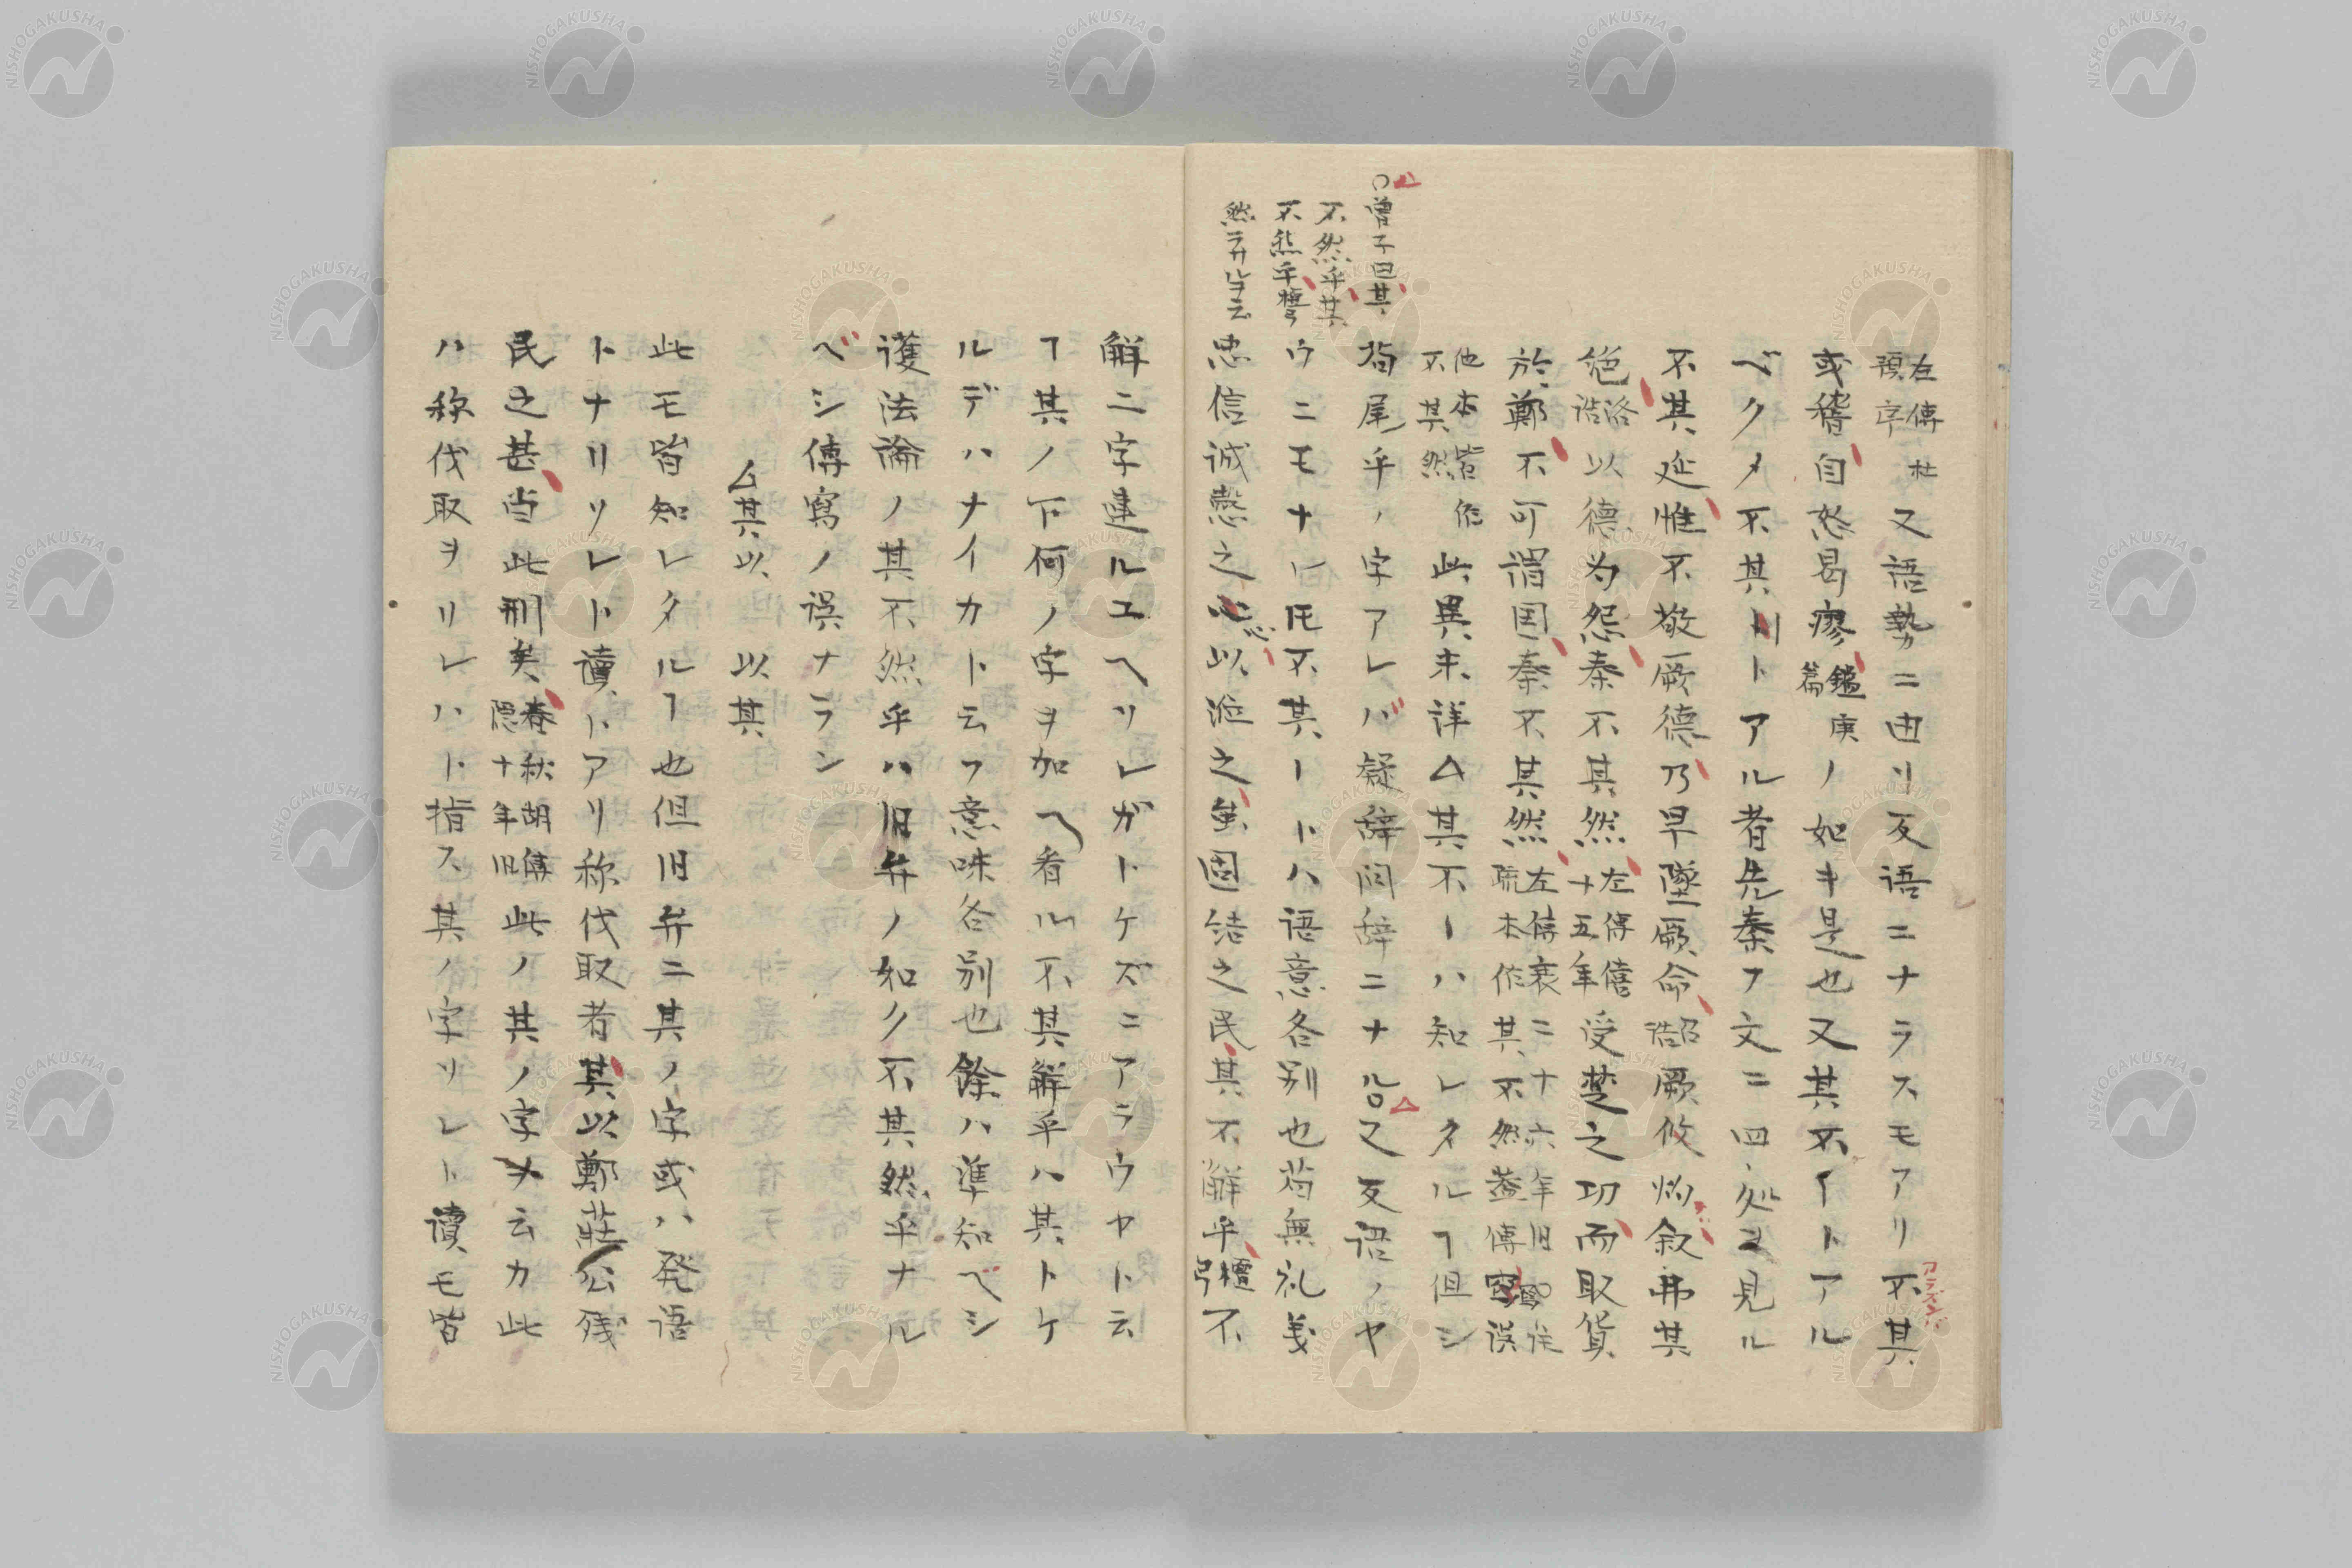 左傳杜
預序
又語勢ニ由リ反語ニナラスモアリ不其
或稽自怒曷瘳
盤庚
篇
ノ如キ是也又其不イトアル
ベクメ不其トアル者先秦ノ文ニ四処ヨ見ル
不其延惟不敬厥德乃早墜厥命
召
誥
厥攸灼叙弗其
絶
洛
誥
以德為怨秦不其然
左傳僖
十五年
受楚之功而取貨
於鄭不可謂国秦不其然
左傳襄二十六年旧
疏本作其不然蓋傳寫誤
他本皆作
不其然
此異未詳△其不ーハ知レタルヿ但シ
句尾乎ノ字アレバ疑辞問辞ニナル又反語ノヤ
ウニモナレ𪜈不其ートハ語意各別也苟無礼義
忠信誠愨之心以涖之雖固結之民其不解乎
檀
弓
不
○曽子曰其
不然乎其
不然乎
然ラサルヲ云
解二字連ルユヘソレガトケズニアラウヤト云
ヿ其ノ下何ノ字ヲ加へ看ル不其解乎ハ其トケ
ルデハナイカト云フ意味各別也餘ハ準知ベシ
護法論ノ其不然乎ハ旧弁ノ如ク不其然乎ナル
ベシ傳寫ノ誤ナラン
△其以 以其
此モ皆知レタルヿ也但旧弁ニ其ノ字或ハ発語
トナリソレト讀トアリ称伐取者其以鄭莊公残
民之甚当此刑矣
春秋胡傳
隠十年旧
此ノ其ノ字ヲ云カ此
ハ称伐取ヲソレハト指ス其ノ字ソレト讀モ皆
NISHOGAKUSHA